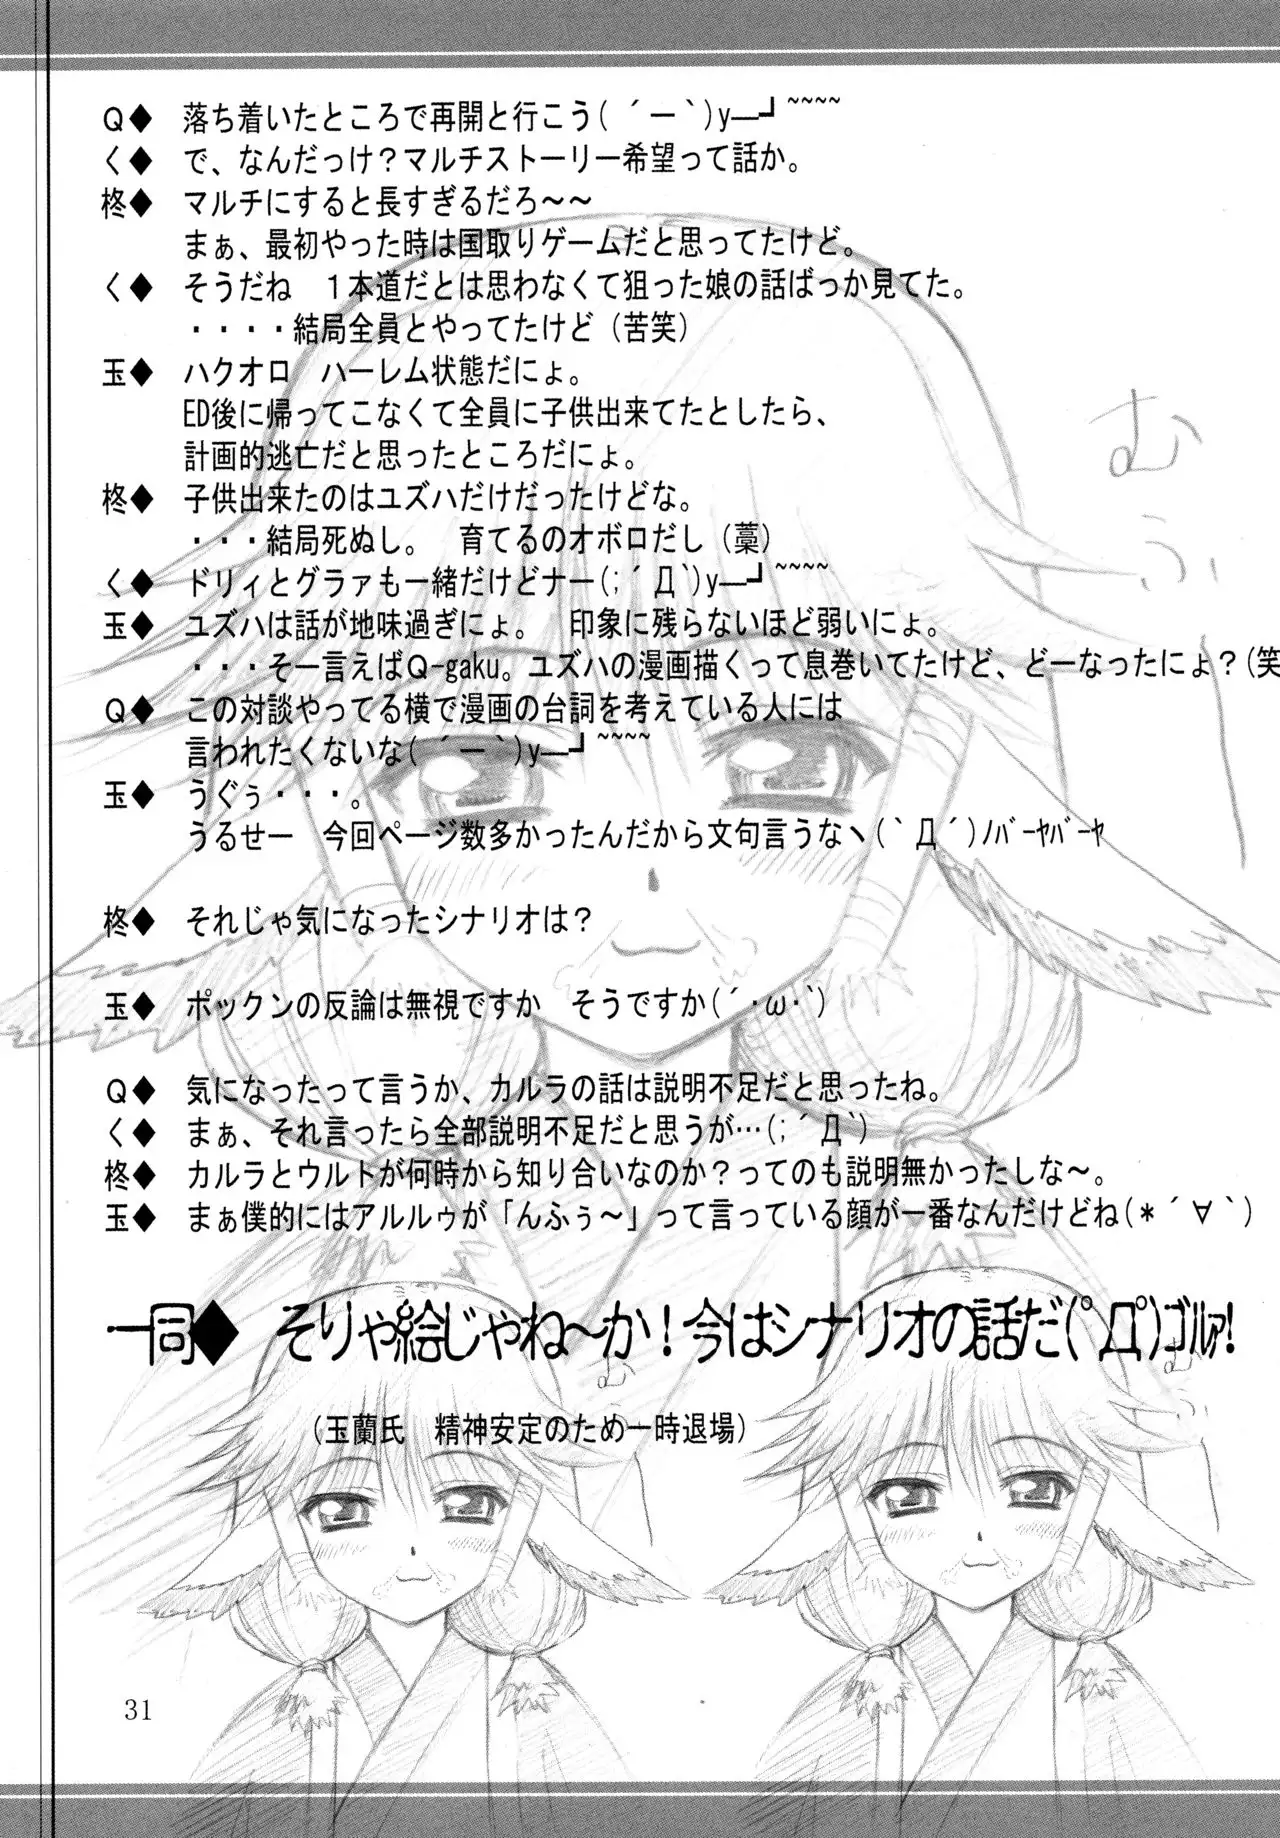 Q◆　落ち着いたところで再開と行こう( ´ー`)y─┛~~~~
く◆　で、なんだっけ？マルチストーリー希望って話か。
柊◆　マルチにすると長すぎるだろ～～
まぁ、最初やった時は国取りゲームだと思ってたけど。
く◆　そうだね　１本道だとは思わなくて狙った娘の話ばっか見てた。
・・・・結局全員とやってたけど（苦笑）
玉◆　ハクオロ　ハーレム状態だにょ。
ED後に帰ってこなくて全員に子供出来てたとしたら、
計画的逃亡だと思ったところだにょ。
柊◆　子供出来たのはユズハだけだったけどな。
・・・結局死ぬし。　育てるのオボロだし（藁）
く◆　ドリィとグラァも一緒だけどナー(;´Д`)y─┛~~~~
玉◆　ユズハは話が地味過ぎにょ。　印象に残らないほど弱いにょ。
・・・そー言えばQ-gaku。ユズハの漫画描くって息巻いてたけど、どーなったにょ？(笑
Q◆　この対談やってる横で漫画の台詞を考えている人には
言われたくないな( ´ー`)y─┛~~~~
玉◆　うぐぅ・・・。
うるせー　今回ページ数多かったんだから文句言うなヽ(`Д´)ﾉﾊﾞｰﾔﾊﾞｰﾔ
柊◆　それじゃ気になったシナリオは？
玉◆　ポックンの反論は無視ですか　そうですか(´･ω･`)
Q◆　気になったって言うか、カルラの話は説明不足だと思ったね。
く◆　まぁ、それ言ったら全部説明不足だと思うが…(;´Д`)
柊◆　カルラとウルトが何時から知り合いなのか？ってのも説明無かったしな～。
玉◆　まぁ僕的にはアルルゥが「んふぅ～」って言っている顔が一番なんだけどね(＊´∀`)
一同◆　そりゃ絵じゃね～か！今はシナリオの話だ(ﾟДﾟ)ｺﾞﾙｧ!
（玉蘭氏　精神安定のため一時退場）
むふー
む
む
31